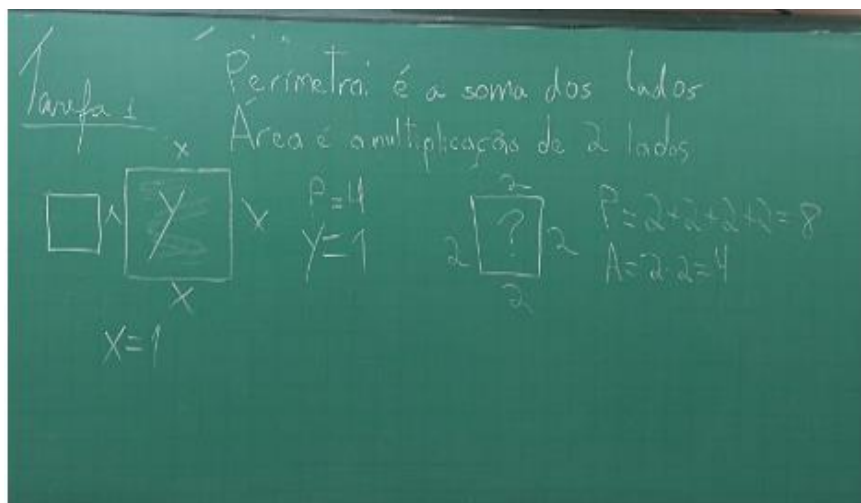 Tarefa 1
Perímetro: é a soma dos lados
Área é a multiplicação de 2 lados
x
x
Y
X
X
P=4
Y=1
X=1
2
2
?
2
2
P=2+2+2+2=8
A=2·2=4